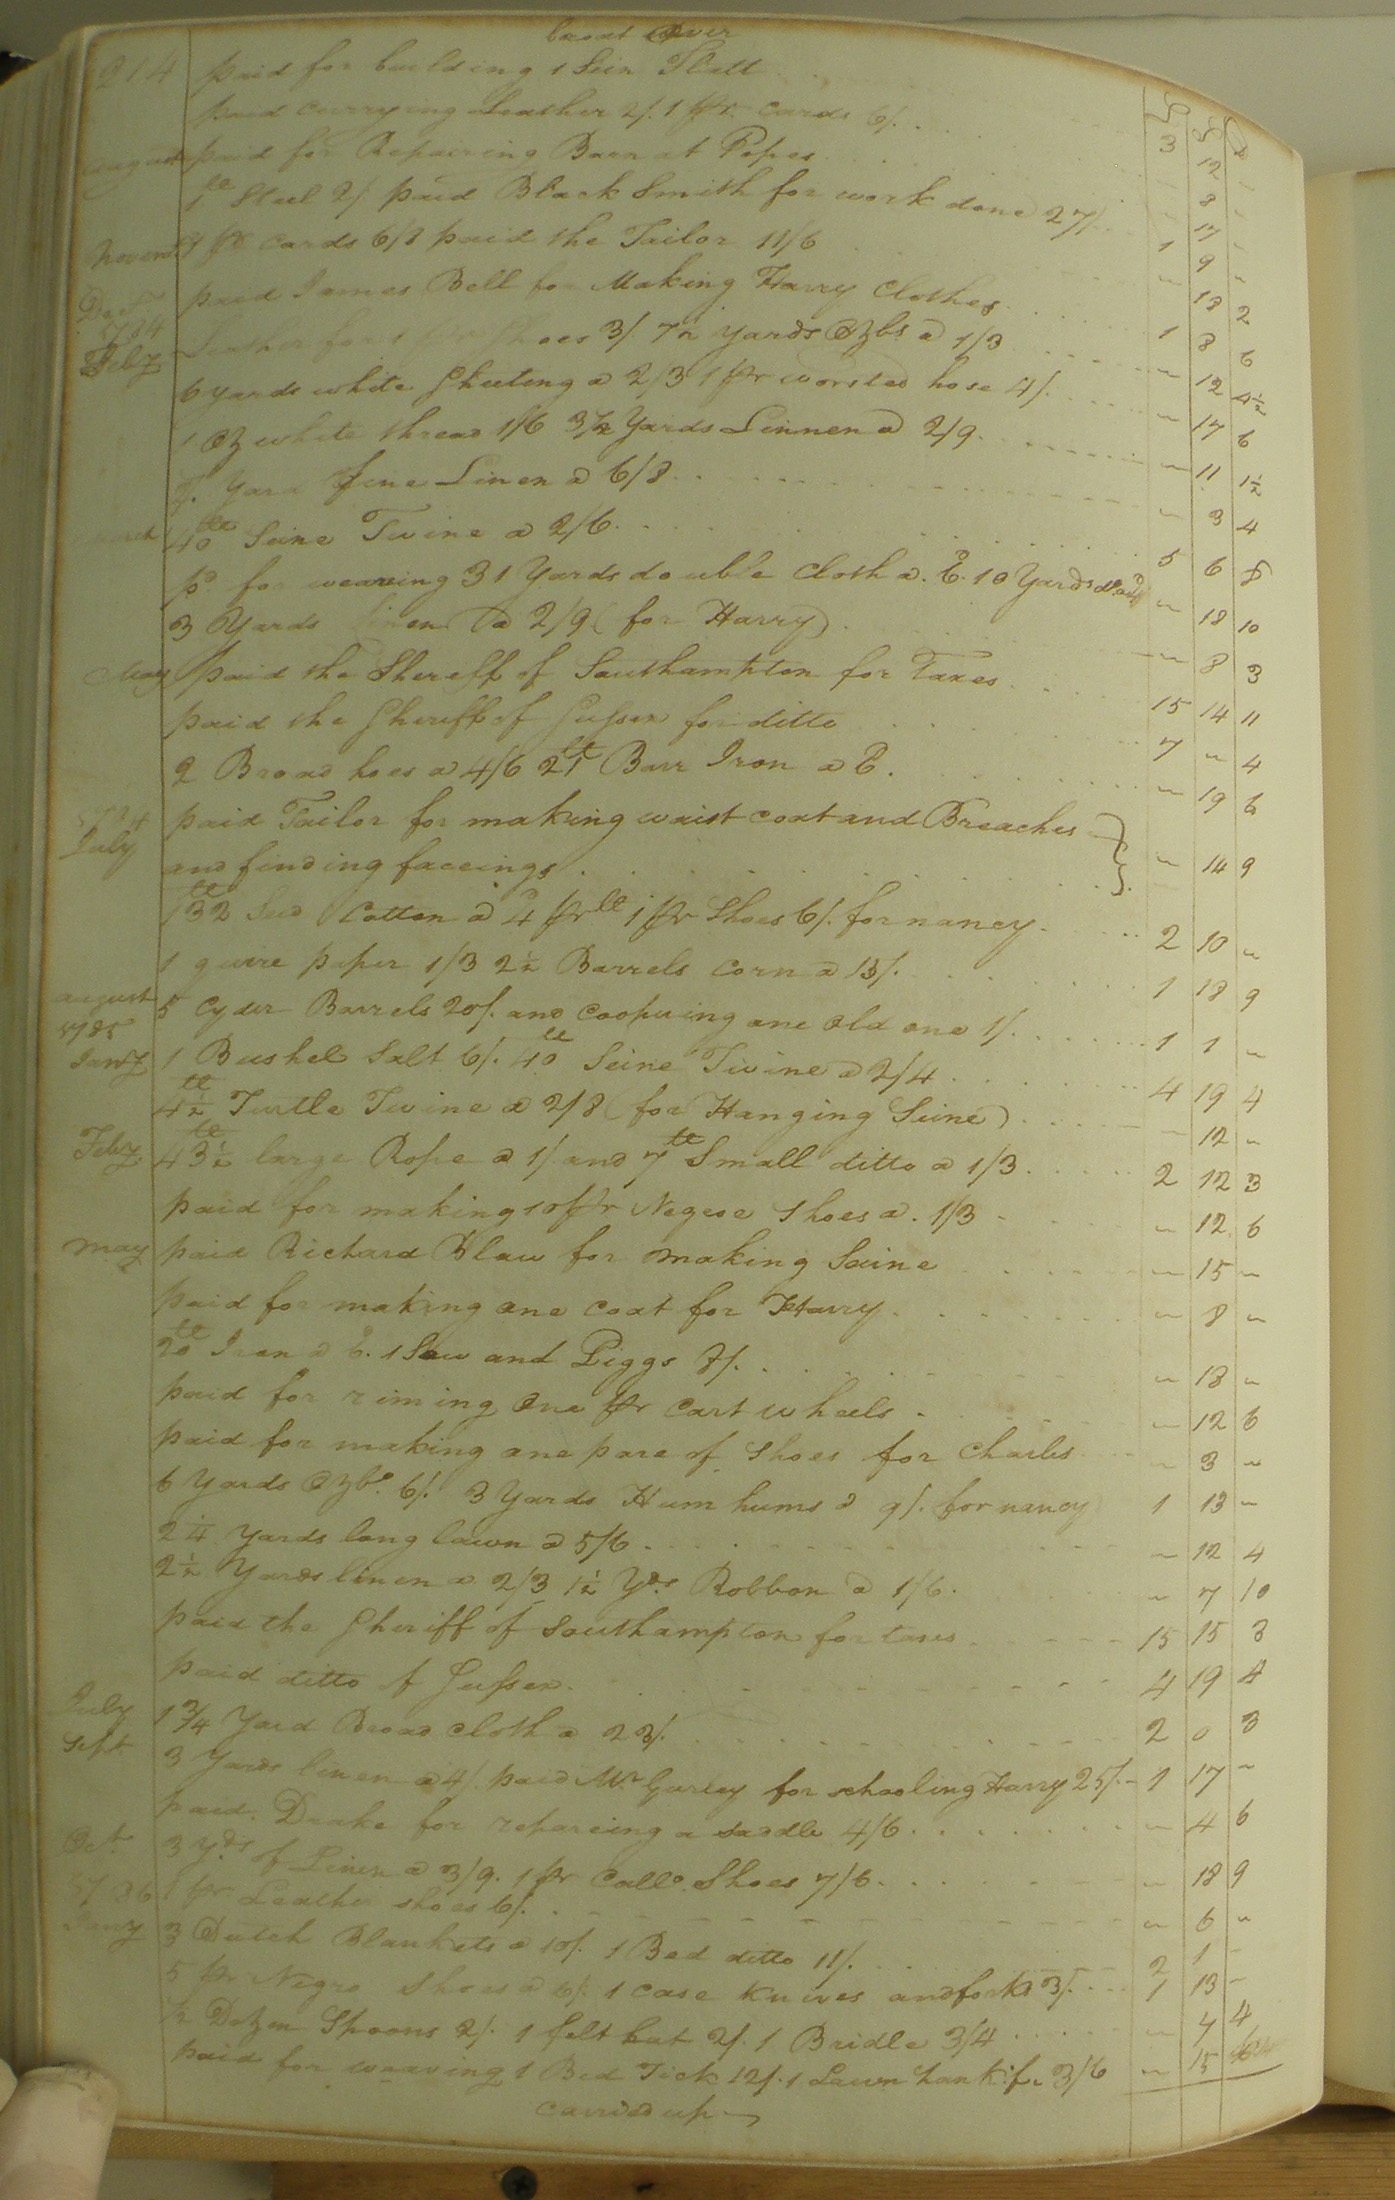 broat Over
214 paid for building 1 Sein
£ S d
paid currying Leather 2/. 1 pr. Cards 6/. 3 12 "
august paid for Repairing Barn at Popes " 8 "
1 lb Steel 2/ paid Black Smith for work done 27/. " 17 "
Novemr 1 pr Cards 6/8 paid the Tailor 11/6 1 9 "
paid James Bell for Making Harry Clothes " 18 2
Decr
1784
Feby Leather for 1 Shoes 3/ 7½ yards Ozbs a 1/3 1 8 6
6 yards white Sheeting a 2/3 1 pr worsted hose 4/. " 12 4½
1 oz white thread 1/6 3½ Yards Linnen a 2/9 " 17 6
Yard fine Linen a 6/8 " 11 1½
" 3 4
March 40 lb Seine Twine a 2/6 5 6 8
pd for weaveing 31 Yards double Cloth a. 6d. 10 Yards do " 18 10
3 Yards linen a 2/9 (for Harry) " 8 3
May paid the Shereff of Southampton for Taxes 15 14 11
paid the Sheriff of Sussex for ditto 7 " 4
2 Broad hoes a 4/6 21 lb Barr Iron a 6. " 19 6
1784
July paid Tailor for making waist coat and Breaches
and finding faceings " 14 9
132 lb Seed Cotton a 4d pr lb 1 pr Shoes 6/. for nancy 2 10 "
1 quire paper 1/3 2½ Barrels Corn a 15/. 1 18 9
august 5 Cyder Barrels 20/. and Coopering one old one 1/. 1 1 "
1785
Jany 1 Bushel Salt 6/. 40 lb Seine Twine a 2/4 4 19 4
4½ lb Turtle Twine a 2/8 (for Hanging Seine) " 12 "
Feby 43½ lb large Rope a 1/ and 7 lb Small ditto a 1/3 2 12 3
paid for making 10 pr Negroe Shoes a. 1/3 " 12 6
may paid Richard Blaw for making Saine " 15 "
paid for making one coat for Harry " 8 "
20 lb Iron a 6. 1 Sow and Piggs 8/. " 18 "
paid for riming One pr Cart wheels " 12 6
paid for making one pare of Shoes for Charles " 3 "
6 Yards Ozbs. 6/. 3 Yards Hum hums a 9/. for nancy 1 13 "
2¼ Yards long lawn a 5/6 " 12 4
2½ Yards linen a 2/3 1½ Yds Robbon a 1/6 " 7 10
paid the Sheriff of Southampton for taxes 15 15 3
paid ditto of Sussex 4 19 4
July 1¾ Yard Broad cloth a 23/. 2 0 3
Sept 3 Yards linen a 4/. paid Mr Gurley for schooling Harry 25/. 1 17 "
paid. Drake for repareing a saddle 4/6 " 4 6
Oct. 3 Yds of Linen a 3/9. 1 pr Callo. Shoes 7/6 " 18 9
1786 1 pr. Leather shoes 6/. " 6 "
Jany 3 Dutch Blankets a 10/. 1 Bed ditto 11/. 2 1 "
5 pr Negro Shoes a 6/. 1 Case Knives and forks 3/. 1 13 "
½ Dozen Spoons 2/. 1 felt hat 2/. 1 Bridle 3/4 " 7 4
paid for weaving 1 Bed Tick 12/. 1 Lawn hank.f 3/6 " 15
carried up